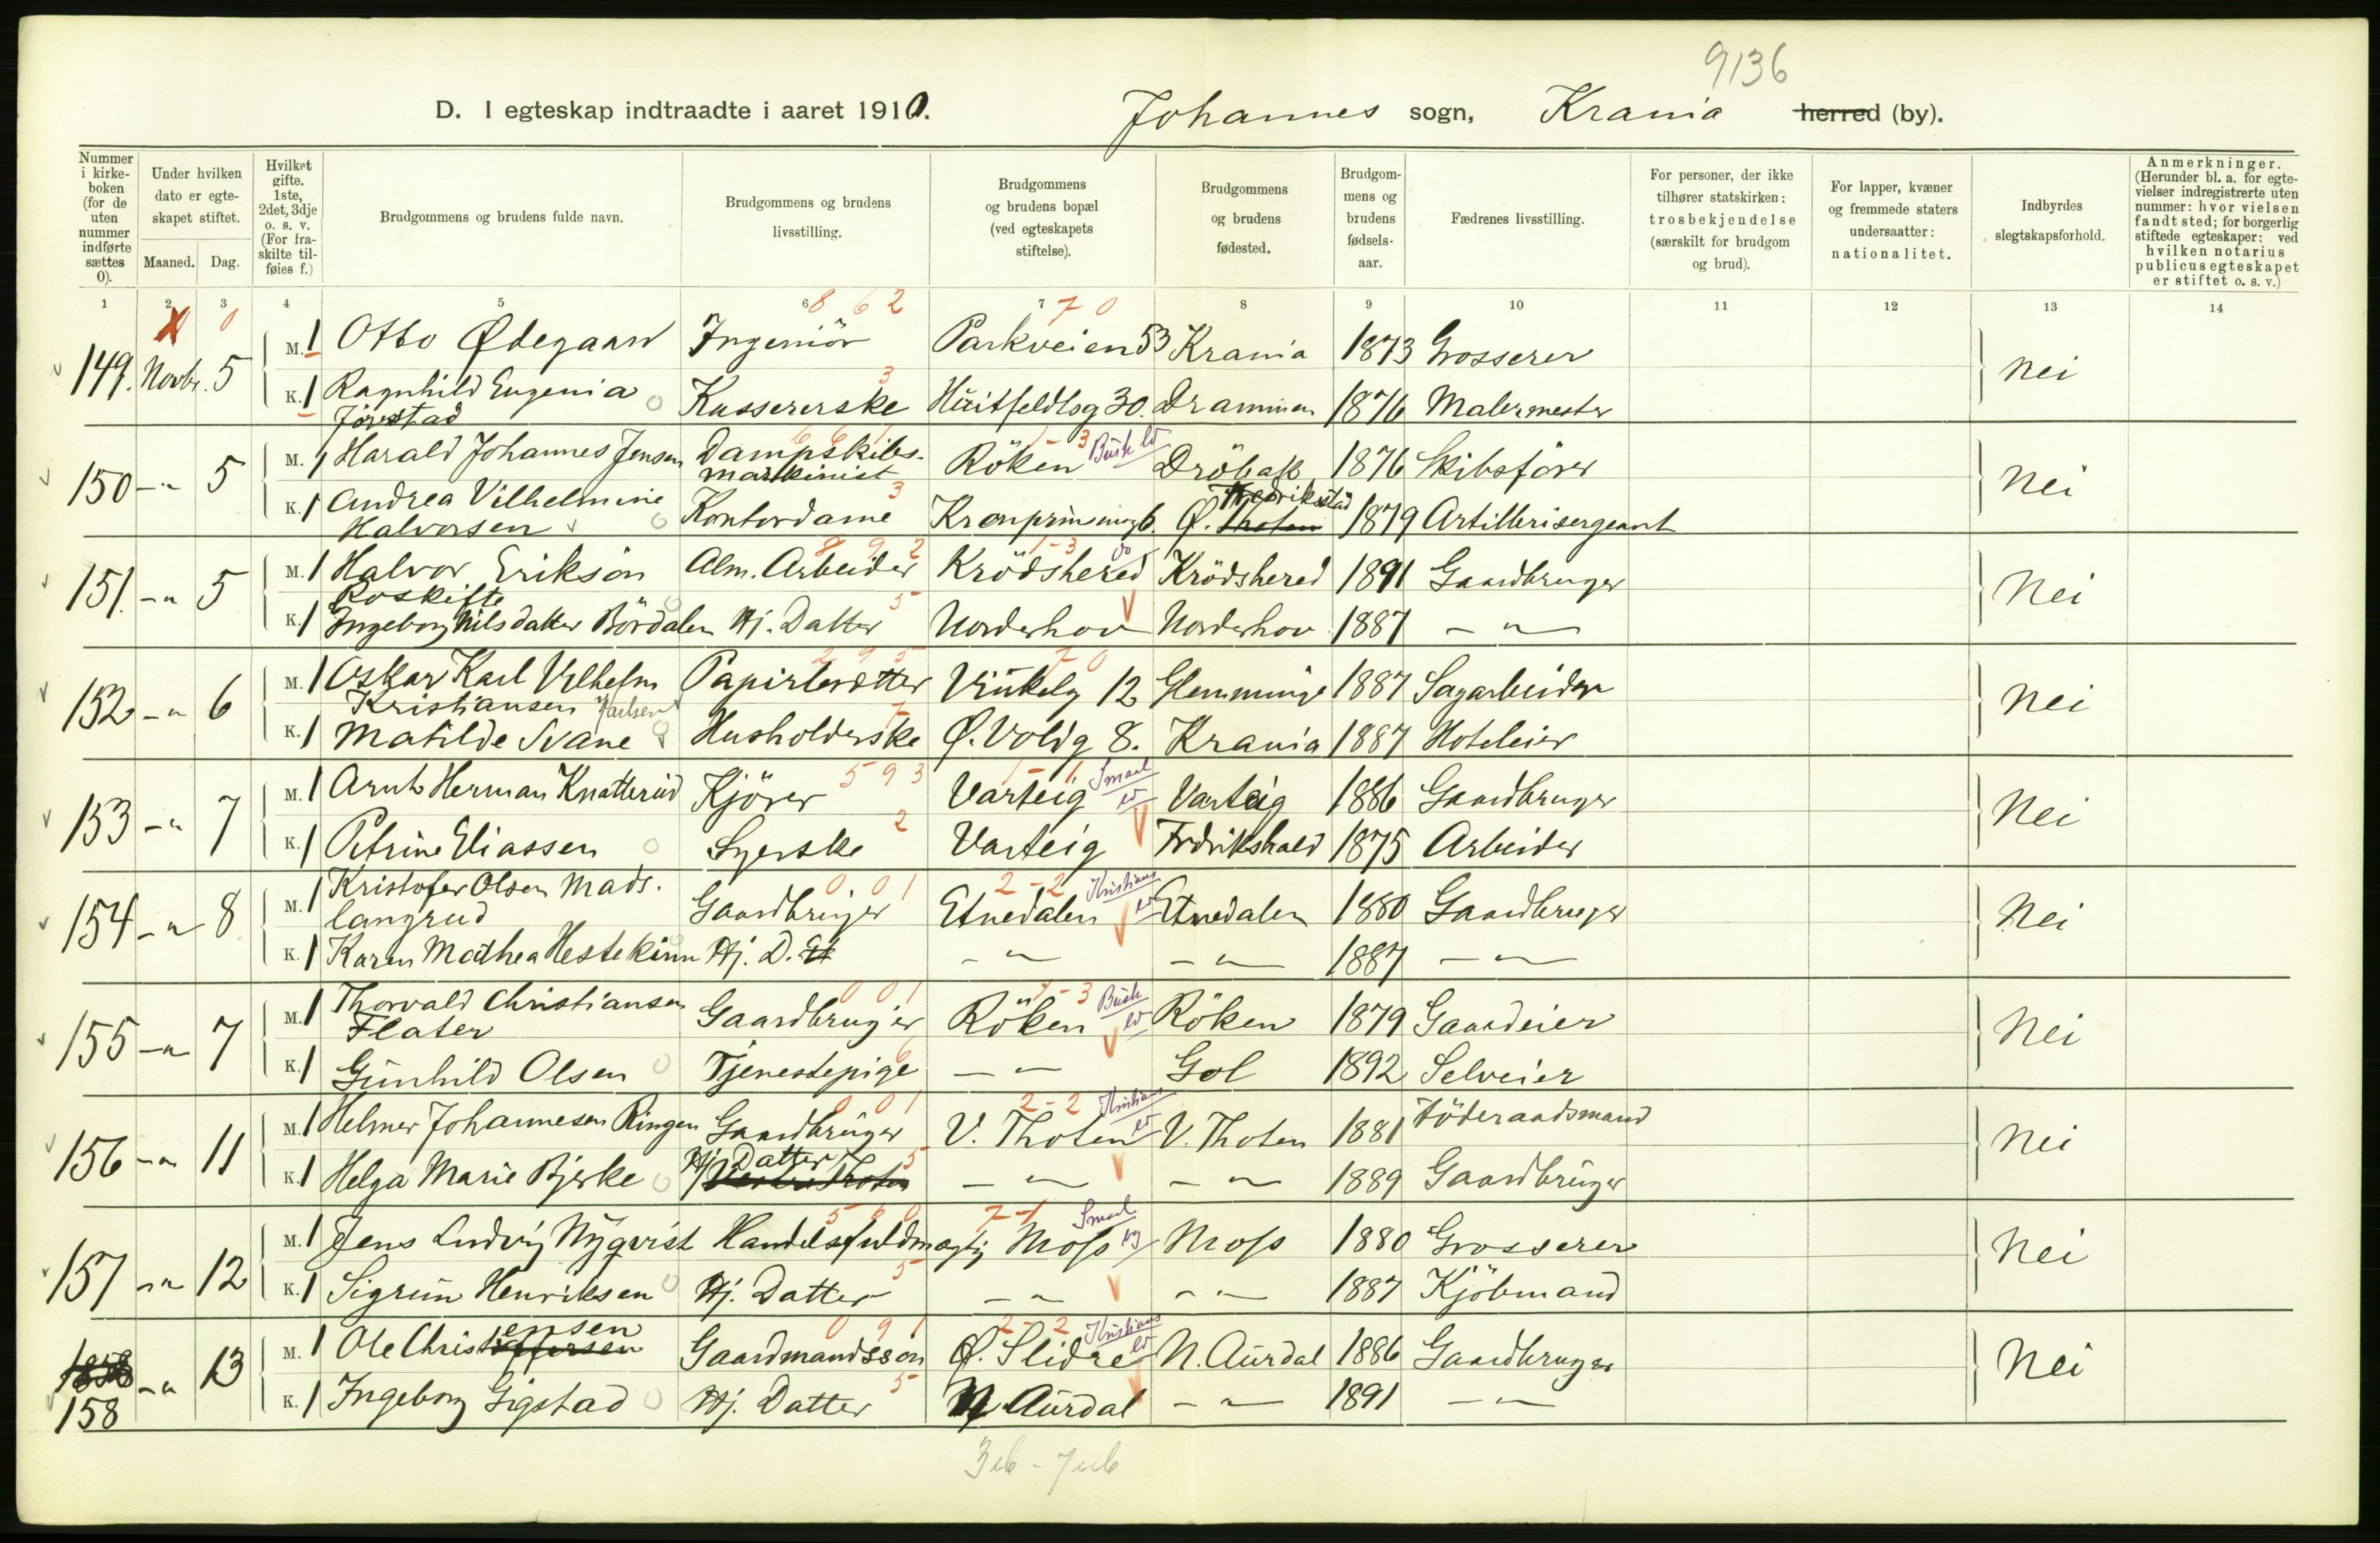 9136
D. I egteskap indtraadte i aaret 1910. Johannes sogn, Krania herred (by).
Nummer i kirke-boken (for de uten nummer indførte sættes 0).
Under hvilken dato er egte-skapet stiftet.
Maaned. Dag.
Hvilket gifte. 1ste, 2det, 3dje o. s. v. (For fra-skilte til-føies f.)
Brudgommens og brudens fulde navn.
Brudgommens og brudens livsstilling.
Brudgommens og brudens bopæl (ved egteskapets stiftelse).
Brudgommens og brudens fødested.
Brudgom-mens og brudens fødsels-aar.
Fædrenes livsstilling.
For personer, der ikke tilhører statskirken: trosbekjendelse (særskilt for brudgom og brud).
For lapper, kvæner og fremmede staters undersaatter: nationalitet.
Indbyrdes slegtskapsforhold.
Anmerkninger. (Herunder bl. a. for egte-vielser indregistrerte uten nummer: hvor vielsen fandt sted; for borgerlig stiftede egteskaper: ved hvilken notarius publicus egteskapet er stiftet o. s. v.)
1 2 3 4 5 6 7 8 9 10 11 12 13 14
X 0 8 6 2 7 0
149. Novbr. 5 M. 1 Otto Ødegaard Ingeniör Parkveien 53 Krania 1873 Grosserer Nei
K. 1 Ragnhild Eugenia Jörstad Kassererske 3 Huitfeldtsg 30. Drammen 1876 Malermester
150 -"- 5 M. 1 Harald Johannes Jensen Dampskibs-maskinist Röken 1-3 Busk Dröbak 1876 Skibsförer Nei
K. 1 Andrea Vilhelmine Halvorsen Kontordame 3 Kronprinsensg 6. Ø. Thoten Fredrikstad 1879 Artillerisergeant
151. -"- 5 M. 1 Halvor Erikson Roskifte Alm. Arbeider 8 9 2 Krödshered 1-3 do Krödshered 1891 Gaardbruger Nei
K. 1 Ingeborg Nilsdatter Bördalen Hj. Datter 5 Norderhov Norderhov 1887 -"-
152 -"- 6 M. 1 Oskar Karl Vilhelm Kristiansen Karlsen Papirberetter 2 9 5 Vinkelg 12 7 0 Glemminge 1887 Sagarbeider Nei
K. 1 Matilde Svane Husholderske 7 Ø. Voldg 8. Krania 1887 Hoteleier
153 -"- 7 M. 1 Arnt Herman Knatterud Kjörer 5 9 3 Varteig 1-1 Smaal Varteig 1886 Gaardbruger Nei
K. 1 Petrine Eliassen Syerske 2 Varteig Fredrikshald 1875 Arbeider
154 -"- 8 M. 1 Kristofer Olsen Mads. langrud Gaardbruger 0 0 1 Etnedalen 2-2 Kristians Etnedalen 1880 Gaardbruger Nei
K. 1 Karen Mathea Hestekinn Hj. D. -"- -"- 1887 -"-
155 -"- 7 M. 1 Thorvald Christiansen Flater Gaardbruger 0 0 1 Röken 1-3 Busk Röken 1879 Gaardeier Nei
K. 1 Gunhild Olsen Tjenestepige 6 -"- Gol 1892 Selveier
156 -"- 11 M. 1 Helmer Johannesen Ringen Gaardbruger 0 0 1 V. Thoten 2-2 Kristians V. Thoten 1881 Föderaadsmand Nei
K. 1 Helga Marie Bjerke Hj. Datter Vestre Thoten 5 -"- -"- 1889 Gaardbruger
157 -"- 12 M. 1 Jens Ludvig Nyqvist Handelsfuldmægtig 5 6 0 Moss 7-1 Smaal Moss 1880 Grosserer Nei
K. 1 Sigrun Henriksen Hj. Datter 5 -"- -"- 1887 Kjöbmand
158 -"- 13 M. 1 Ole Christensen Gaardmandssön 0 9 1 Ø. Slidre 2-2 Kristians N. Aurdal 1886 Gaardbruger Nei
158 K. 1 Ingeborg Sigstad Hj. Datter 5 N Aurdal -"- 1891 -"-